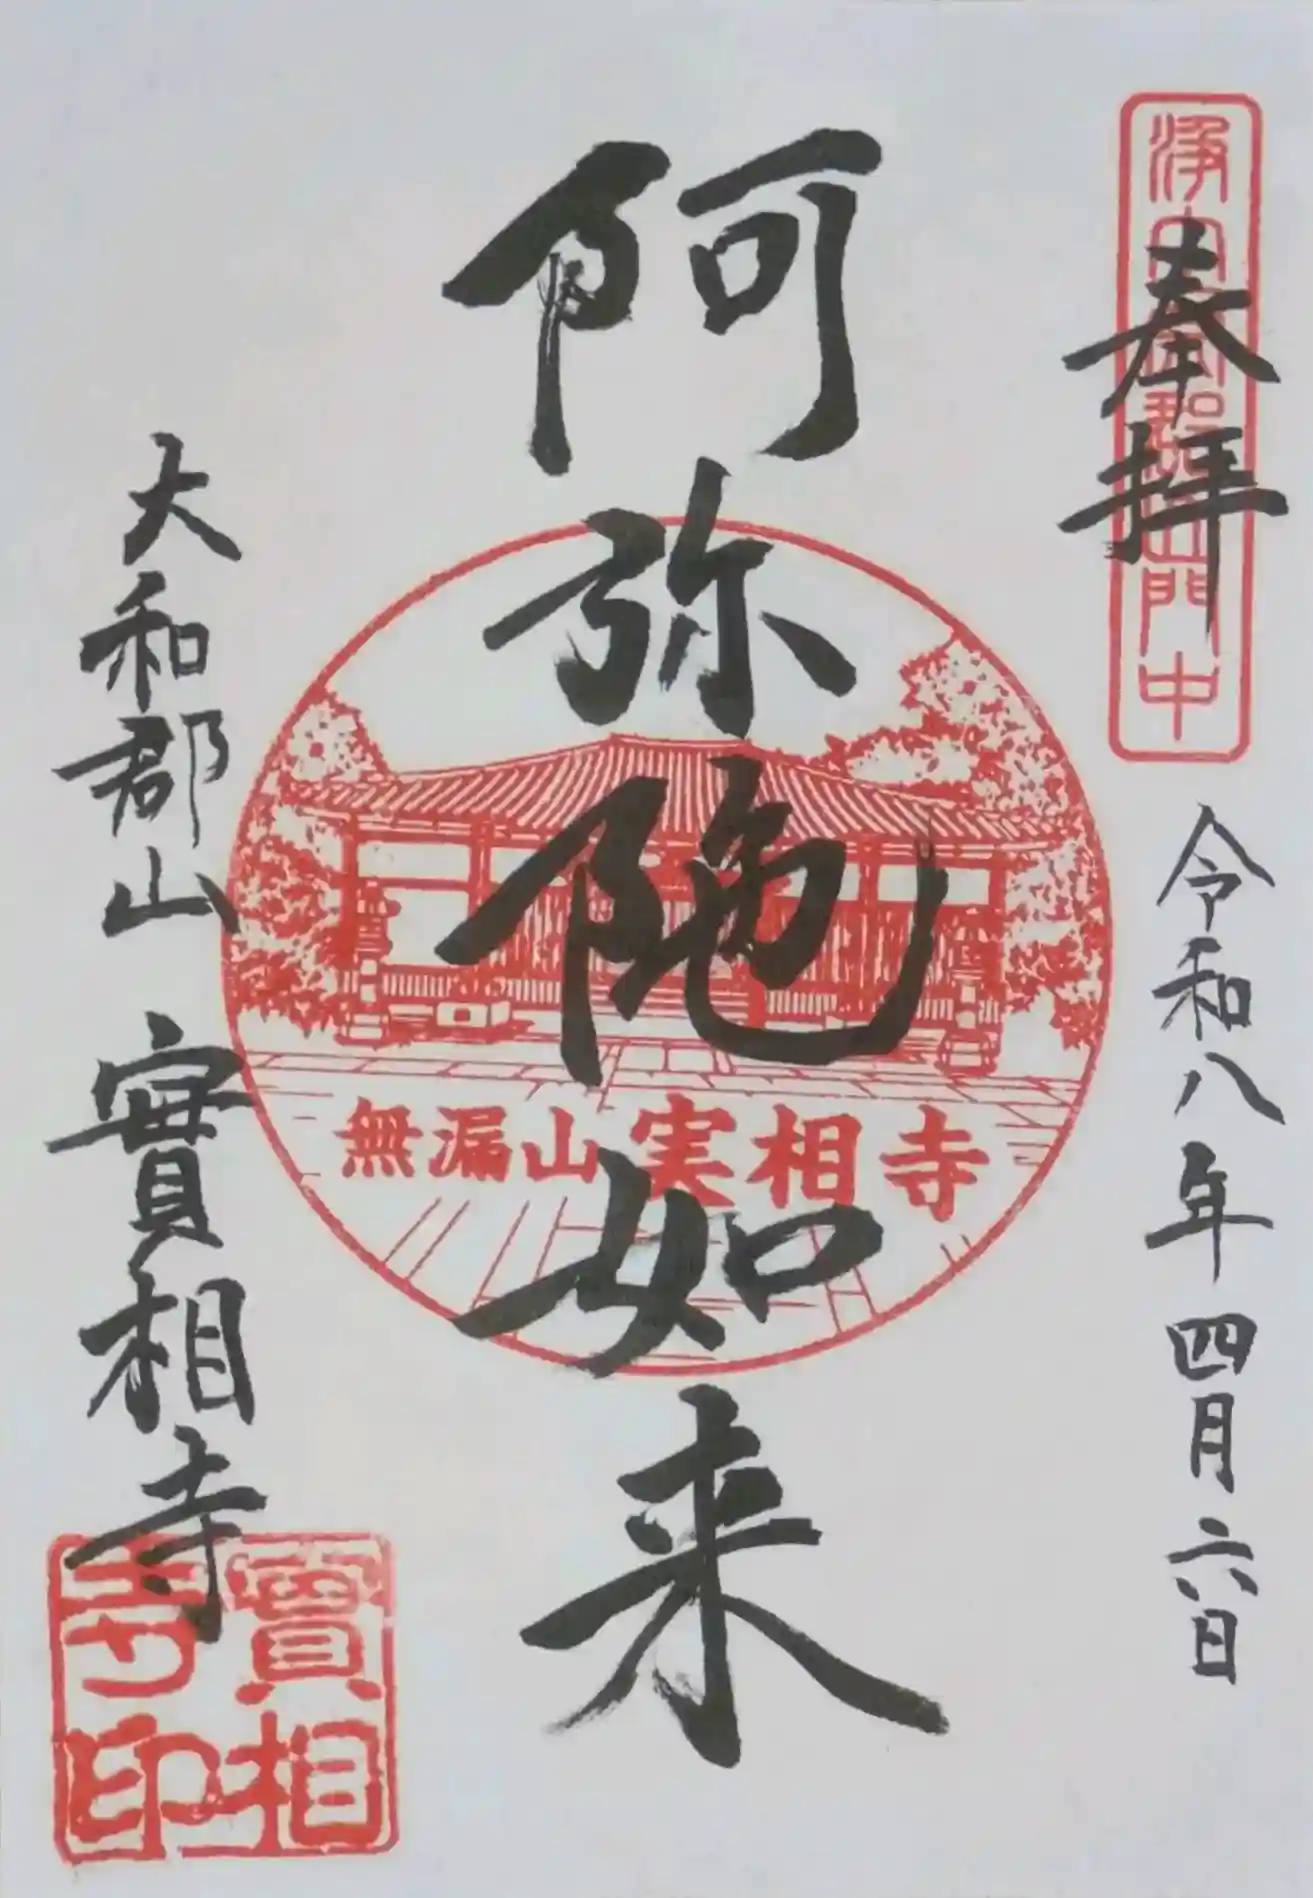 奉拝
令和八年四月六日
阿弥陀如来
無漏山 実相寺
大和郡山 實相寺
實相
寺印